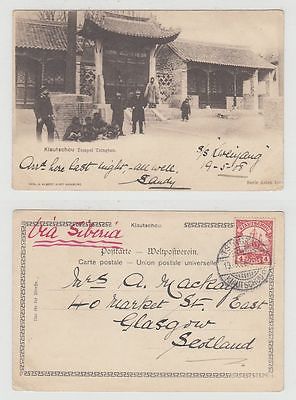 Kiautschou Tempel Tsingtau.
S/S "Kweiyang"
19-5-08
Arrd here last night - all well.
Sandy
Via Siberia
Kiautschou
Postkarte - Weltpostverein.
Carte postale - Union postale universelle
Mrs A. Mackay
40 Market St. East
Glasgow
Scotland